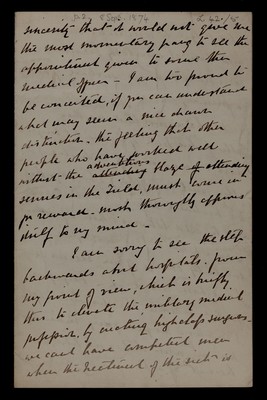 sincerity that it would not give me
the most momentary pang to see the
appointment given to some other
medical officer – I am too proud to
be conceited, if you can understand
what may seem a nice drawn
distinction. The feeling that other
people who have worked well
without the adventitious attending blaze of attending
services in the Field, must come in
for rewards – most thoroughly approves
itself to my mind –
I am sorry to see the step
backwards abt hospitals. from
my point of view, which is briefly
this to elevate the military medical
profession, by creating high class surgeons –
we cant have competent men
when the treatment of the sick is